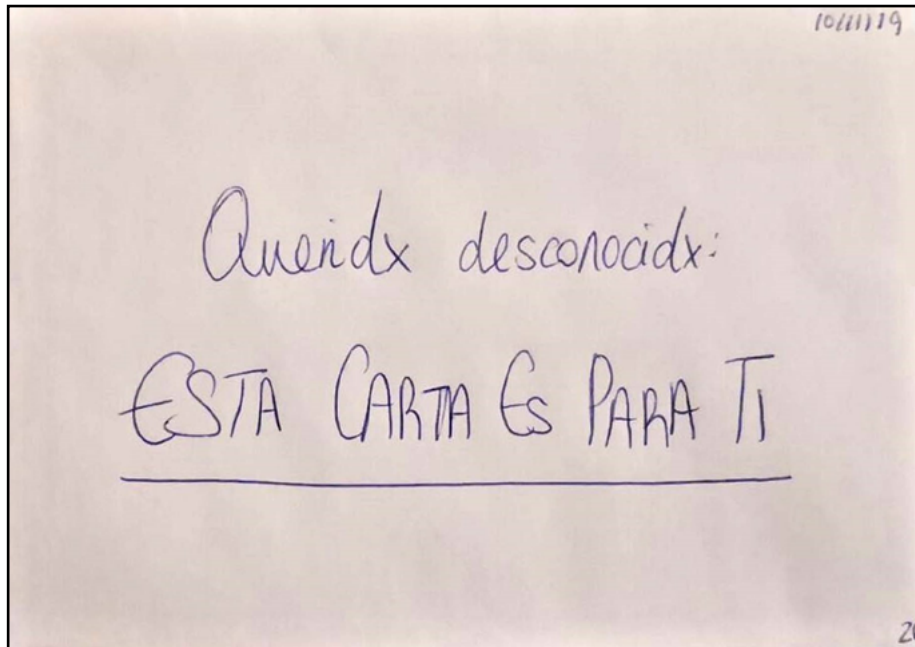 10/11/19
Queridx desconocidx:
ESTA CARTA ES PARA TI